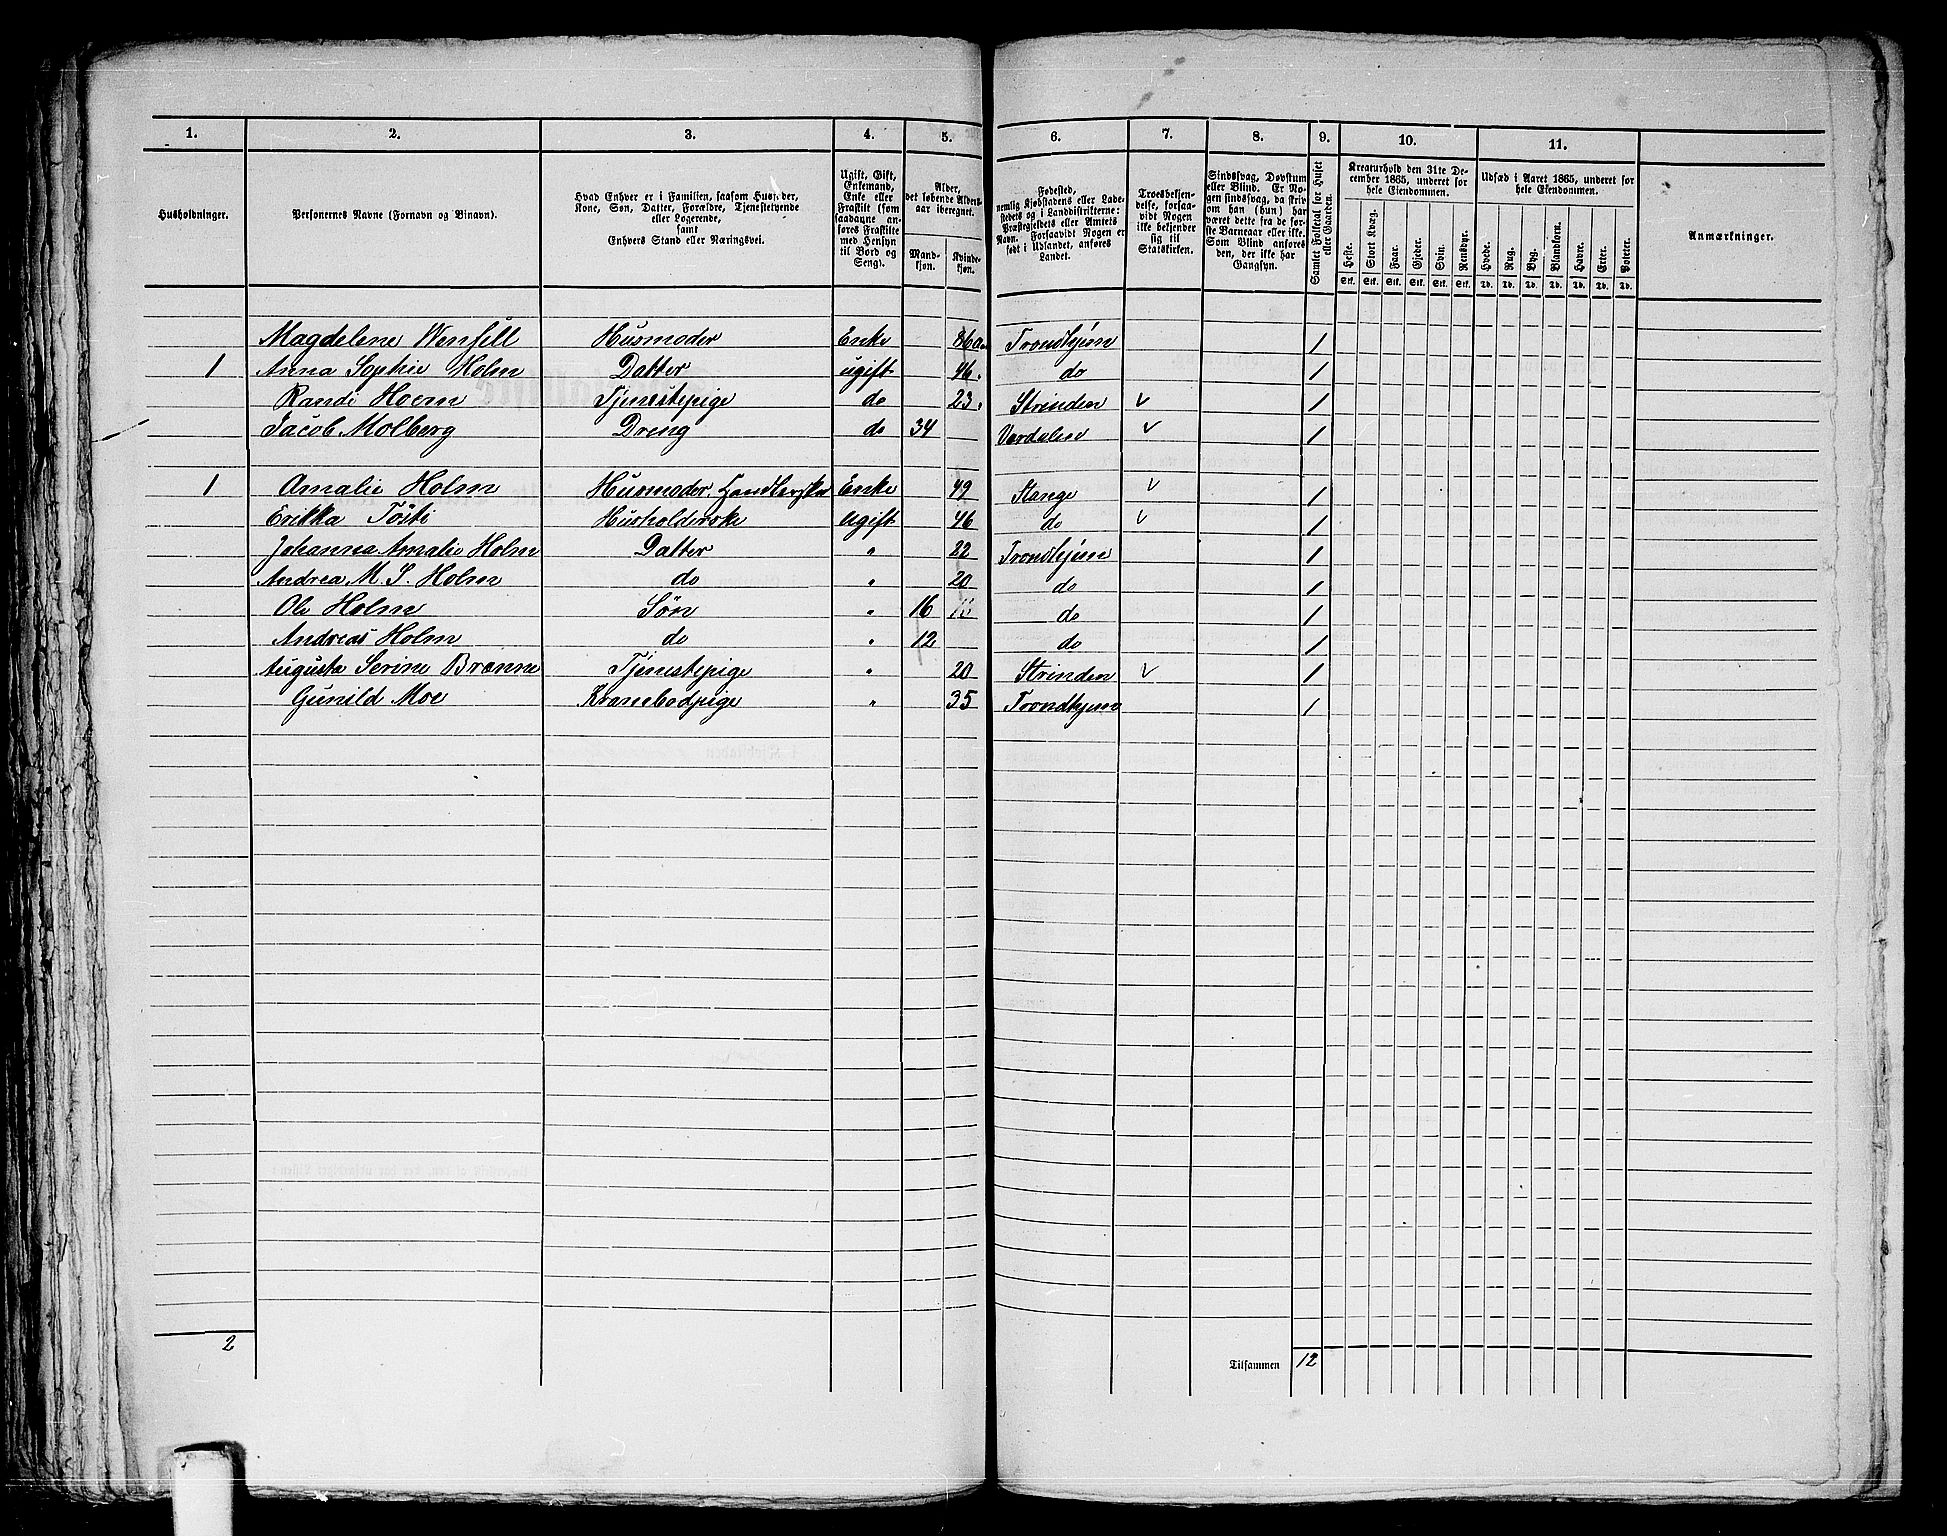 1. 2. 3. 4. 5. 6. 7. 8. 9. 10. 11.
Husholdninger.
Personernes Navne (Fornavn og Binavn).
Hvad Enhver er i Familien, saasom Husfader,
Kone, Søn, Datter, Forældre, Tjenestetyende
eller Logerende,
samt
Enhvers Stand eller Næringsvei.
Ugift, Gift,
Enkemand,
Enke eller
Fraskilt (som
saadanne an-
føres Fraskilte
med Hensyn
til Bord og
Seng).
Alder,
det løbende Alders-
aar iberegnet.
Mand-
kjøn.
Kvinde-
kjøn.
Fødested,
nemlig Kjøbstadens eller Lade-
stedets og i Landdistrikterne:
Præstegjeldets eller Amtets
Navn. Forsaavidt Nogen er
født i Udlandet, anføres
Landet.
Troesbekjen-
delse, forsaa-
vidt Nogen
ikke bekjender
sig til
Statskirken.
Sindssvag, Døvstum
eller Blind. Er No-
gen sindssvag, da skriv
om han (hun) har
været dette fra de før-
ste Barneaar eller ikke.
Som Blind anføres
den, der ikke har
Gangsyn.
Samlet Folketal for Huset
eller Gaarden.
Kreaturhold den 31te De-
cember 1865, underet for
hele Eiendommen.
Heste. Stort Kvæg. Faar. Gjeder. Svin. Rensdyr.
Stk. Stk. Stk. Stk. Stk. Stk.
Udsæd i Aaret 1865, underet for
hele Eiendommen.
Hvede. Rug. Byg. Blandkorn. Havre. Erter. Poteter.
Td. Td. Td. Td. Td. Td. Td.
Anmærkninger.
Magdelene Wensell Husmoder Enke 86 Trondhjem 1
1 Anna Sophie Holm Datter ugift 46. do 1
Randi Hoem Tjenestepige do 23. Strinden 1
Jacob Molberg Dreng do 34 Værdalen 1
1 Amalie Holm Husmoder. Handlerske Enke 49 Stange 1
Erikka Tøsti Husholderske Ugift 46 do 1
Johanna Amalie Holm Datter " 22 Trondhjem 1
Andrea M. S. Holm do " 20 do 1
Ole Holm Søn " 16 do 1
Andreas Holm do " 12 do 1
Augusta Serine Brænne Tjenestepige " 20 Strinden 1
Gunild Moe Krambodpige " 35 Trondhjem 1
2 Tilsammen 12